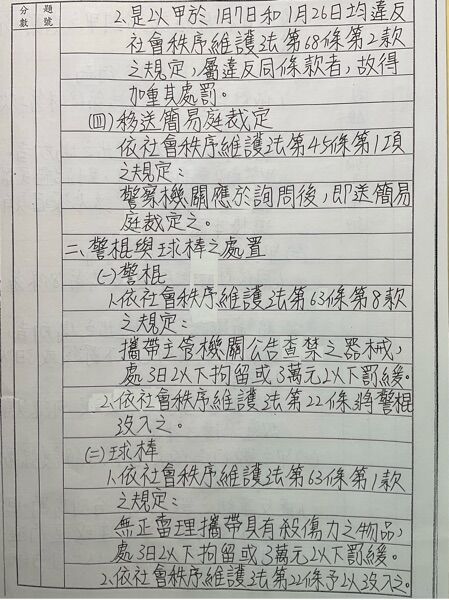 題號
分數
2.是以甲於1月7日和1月26日均違反
社會秩序維護法第68條第2款
之規定，屬違反同條款者，故得
加重其處罰。
(四)移送簡易庭裁定
依社會秩序維護法第45條第1項
之規定：
警察機關應於詢問後，即送簡易
庭裁定之。
二、警棍與球棒之處置
(一)警棍
1.依社會秩序維護法第63條第8款
之規定：
攜帶主管機關公告查禁之器械，
處3日以下拘留或3萬元以下罰緩。
2.依社會秩序維護法第22條將警棍
沒入之。
(二)球棒
1.依社會秩序維護法第63條第1款
之規定：
無正當理攜帶具有殺傷力之物品，
處3日以下拘留或3萬元以下罰緩。
2.依社會秩序維護法第22條予以沒入之。